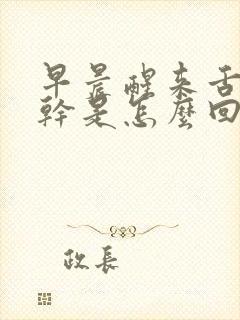 早晨醒来舌
幹是怎麼回
政長